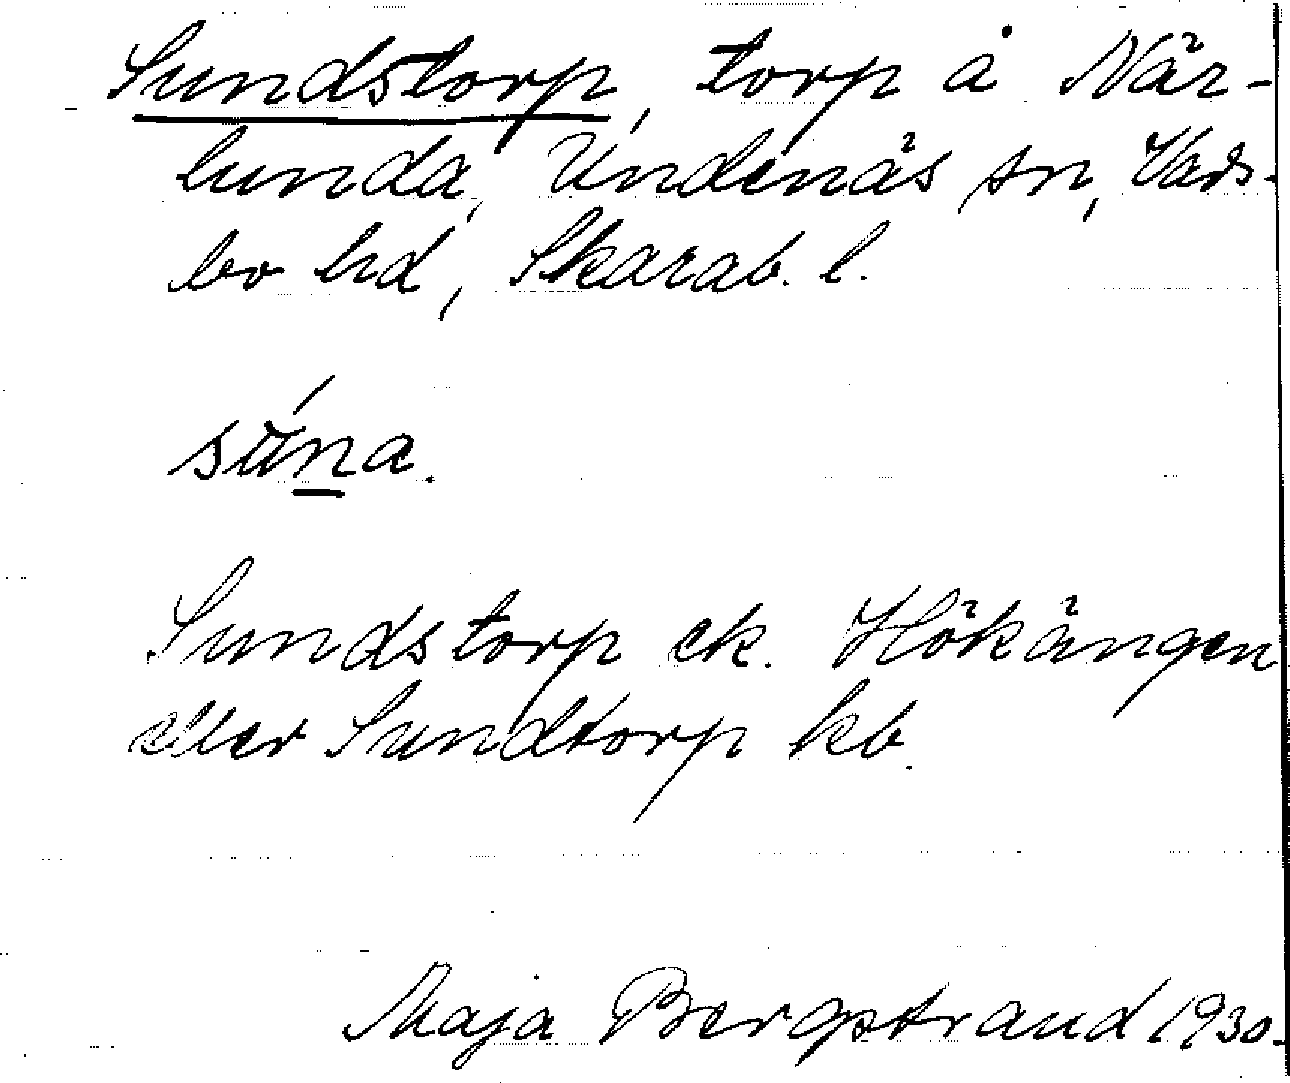 Sundstorp, torp å När-
lunda, Undenäs sn, Vads-
bo hd, Skarab. l.
súna.
Sundstorp ek. Hökängen
eller Sundtorp kb.
Maja Bergstrand 1930.